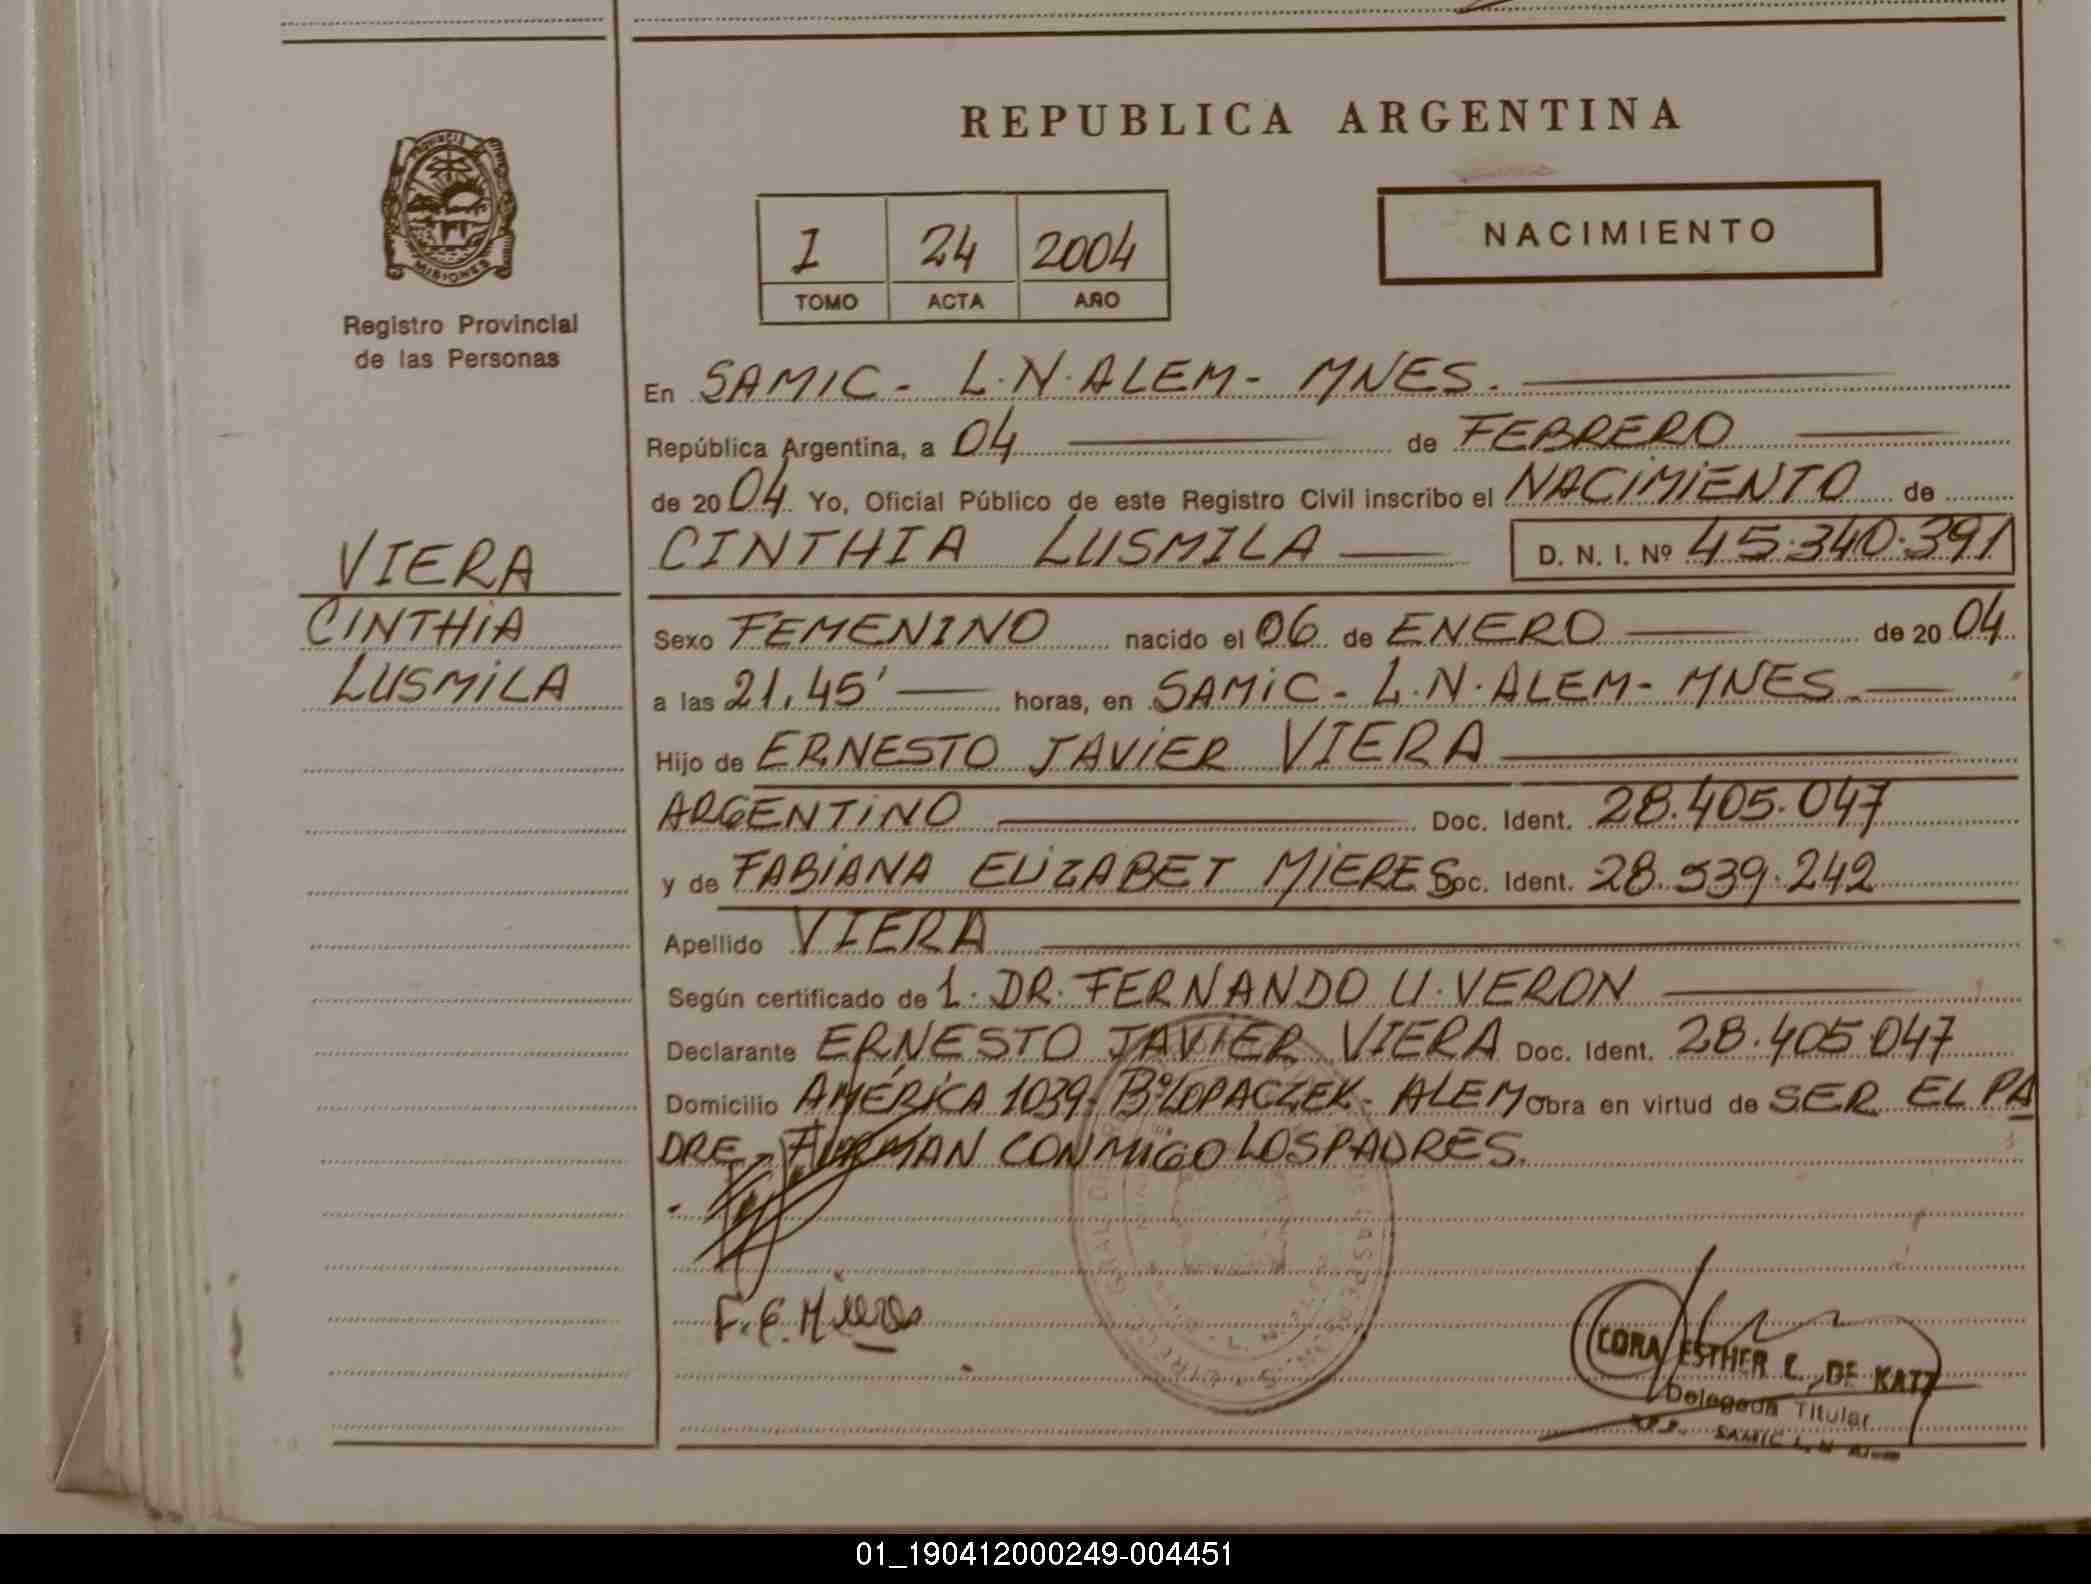 REPUBLICA ARGENTINA
PROVINCIA
MISIONES
Registro Provincial
de las Personas
I 24 2004
TOMO ACTA AÑO
NACIMIENTO
En SAMIC - L.N.ALEM - MNES.
República Argentina, a 04 de FEBRERO
de 2004 Yo, Oficial Público de este Registro Civil inscribo el NACIMIENTO de
CINTHIA LUSMILA D. N. I. Nº 45.340.391
VIERA
CINTHIA
LUSMILA
Sexo FEMENINO nacido el 06 de ENERO de 2004
a las 21,45' horas, en SAMIC - L.N.ALEM - MNES.
Hijo de ERNESTO JAVIER VIERA
ARGENTINO Doc. Ident. 28.405.047
y de FABIANA ELIZABET MIERES Doc. Ident. 28.539.242
Apellido VIERA
Según certificado de 1. DR. FERNANDO U. VERON
Declarante ERNESTO JAVIER VIERA Doc. Ident. 28.405.047
Domicilio AMÉRICA 1039 - Bº LOPACZEK - ALEM Obra en virtud de SER EL PA
DRE - FIRMAN CONMIGO LOS PADRES.
F.E. Mieres
CORA ESTHER L. DE KATZ
Delegada Titular
SAMIC L. N. Alem
01_190412000249-004451